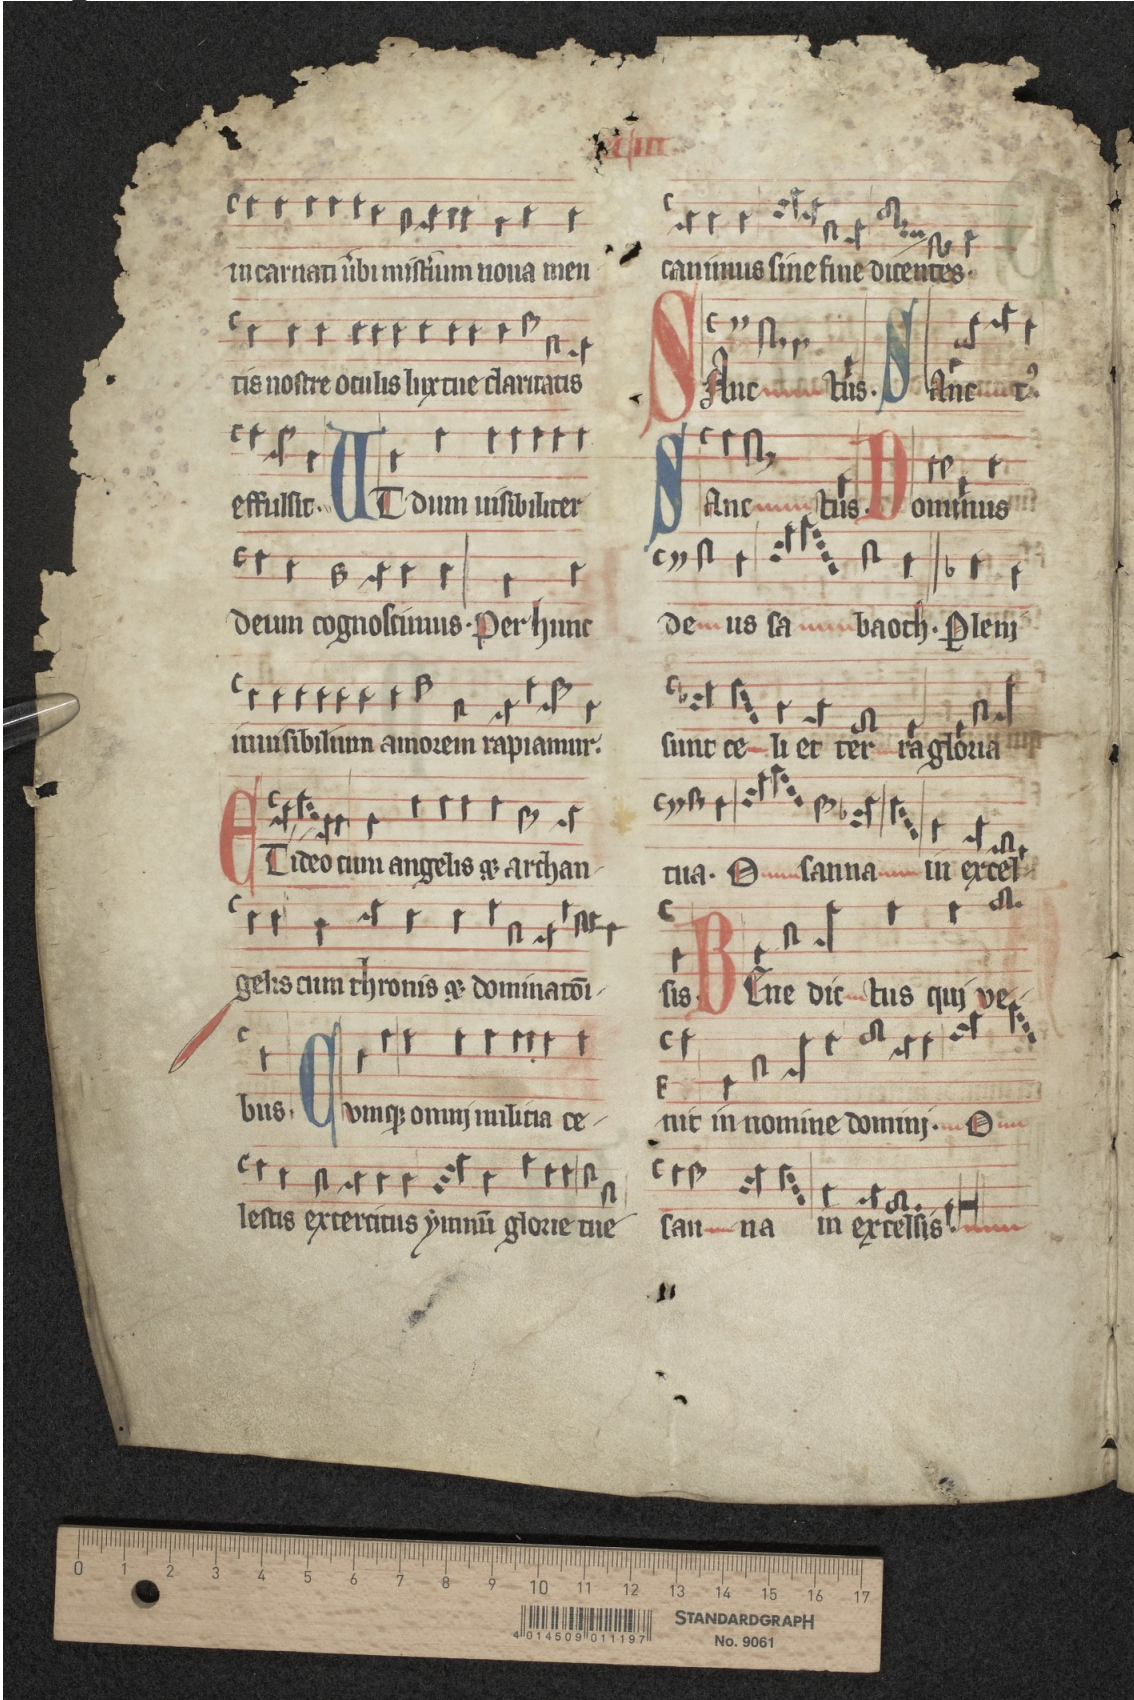 incarnati ũbi mist̾ium noua men
tis nostre oculis lux tue claritatis
effulsit. UT dum uisibiliter
deum cognoscimus. Per hunc
inuisibilium amorem rapiamur.
ET ideo cum angelis ⁊ archan-
gelis cum thronis ⁊ dominatōi-
bus. Cumq; omnj militia ce-
lestis exercitus ẏmnū glorie tue
canimus sine fine dicentes.
SAnc tus. SAnc tꝰ.
SAnc tus. Dominus
de us sa baoth. Plenj
sunt ce li et ter ra gloria
tua. O sanna in excel-
sis. BEne dic tus quj ve-
nit in nomine dominj. O
san na in excelsis.
0 1 2 3 4 5 6 7 8 9 10 11 12 13 14 15 16 17
STANDARDGRAPH
No. 9061
4 014509 011197